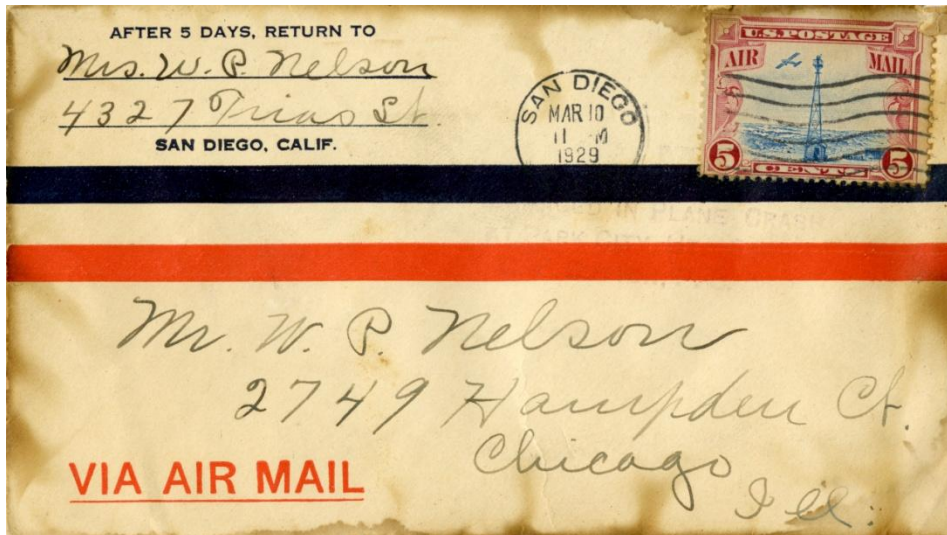 AFTER 5 DAYS, RETURN TO
Mrs. W. P. Nelson
4327 Trias St.
SAN DIEGO, CALIF.
SAN DIEGO
MAR 10
11 M
1929
U.S. POSTAGE
AIR MAIL
5 5
CENTS
IN PLANE CRASH
AT PARK CITY, U
Mr. W. P. Nelson
2749 Hampden Ct.
Chicago
Ill.
VIA AIR MAIL